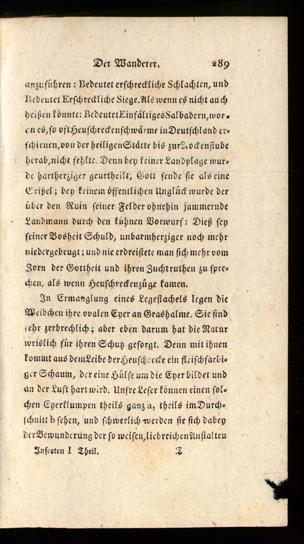 Der Wanderer. 289
anzuführen: Bedeutet erschreckliche Schlachten, und
Bedeutet Erschreckliche Siege. Als wenn es nicht auch
heißen könnte: Bedeutet Einfältiges Salbadern, wor-
en es, so oft Heuschreckenschwärme in Deutschland er-
schienen, von der heiligen Stätte bis zur Rockenstube
herab, nicht fehlte. Denn bey keiner Landplage wur-
de hartherziger geurtheilt, Gott sende sie als eine
Geißel; bey keinem öffentlichen Unglück wurde der
über den Ruin seiner Felder ohnehin jammernde
Landmann durch den kühnen Vorwurf: Dieß sey
seiner Bosheit Schuld, unbarmherziger noch mehr
niedergebeugt; und nie erdreistete man sich mehr vom
Zorn der Gottheit und ihren Zuchtruthen zu spre-
chen, als wenn Heuschreckenzüge kamen.
In Ermanglung eines Legestachels legen die
Weibchen ihre ovalen Eyer an Grashalme. Sie sind
sehr zerbrechlich; aber eben darum hat die Natur
weislich für ihren Schutz gesorgt. Denn mit ihnen
kommt aus dem Leibe der Heuschrecke ein fleischfarbi-
ger Schaum, der eine Hülse um die Eyer bildet und
an der Luft hart wird. Unsre Leser können einen sol-
chen Eyerklumpen theils ganz a, theils im Durch-
schnitt b sehen, und schwerlich werden sie sich dabey
der Bewunderung der so weisen, liebreichen Anstalten
Insecten I Theil. T